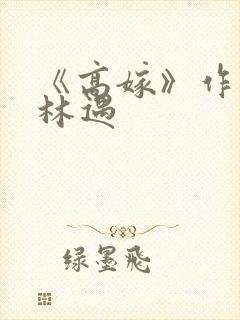 《高嫁》作
林遇
绿墨飞